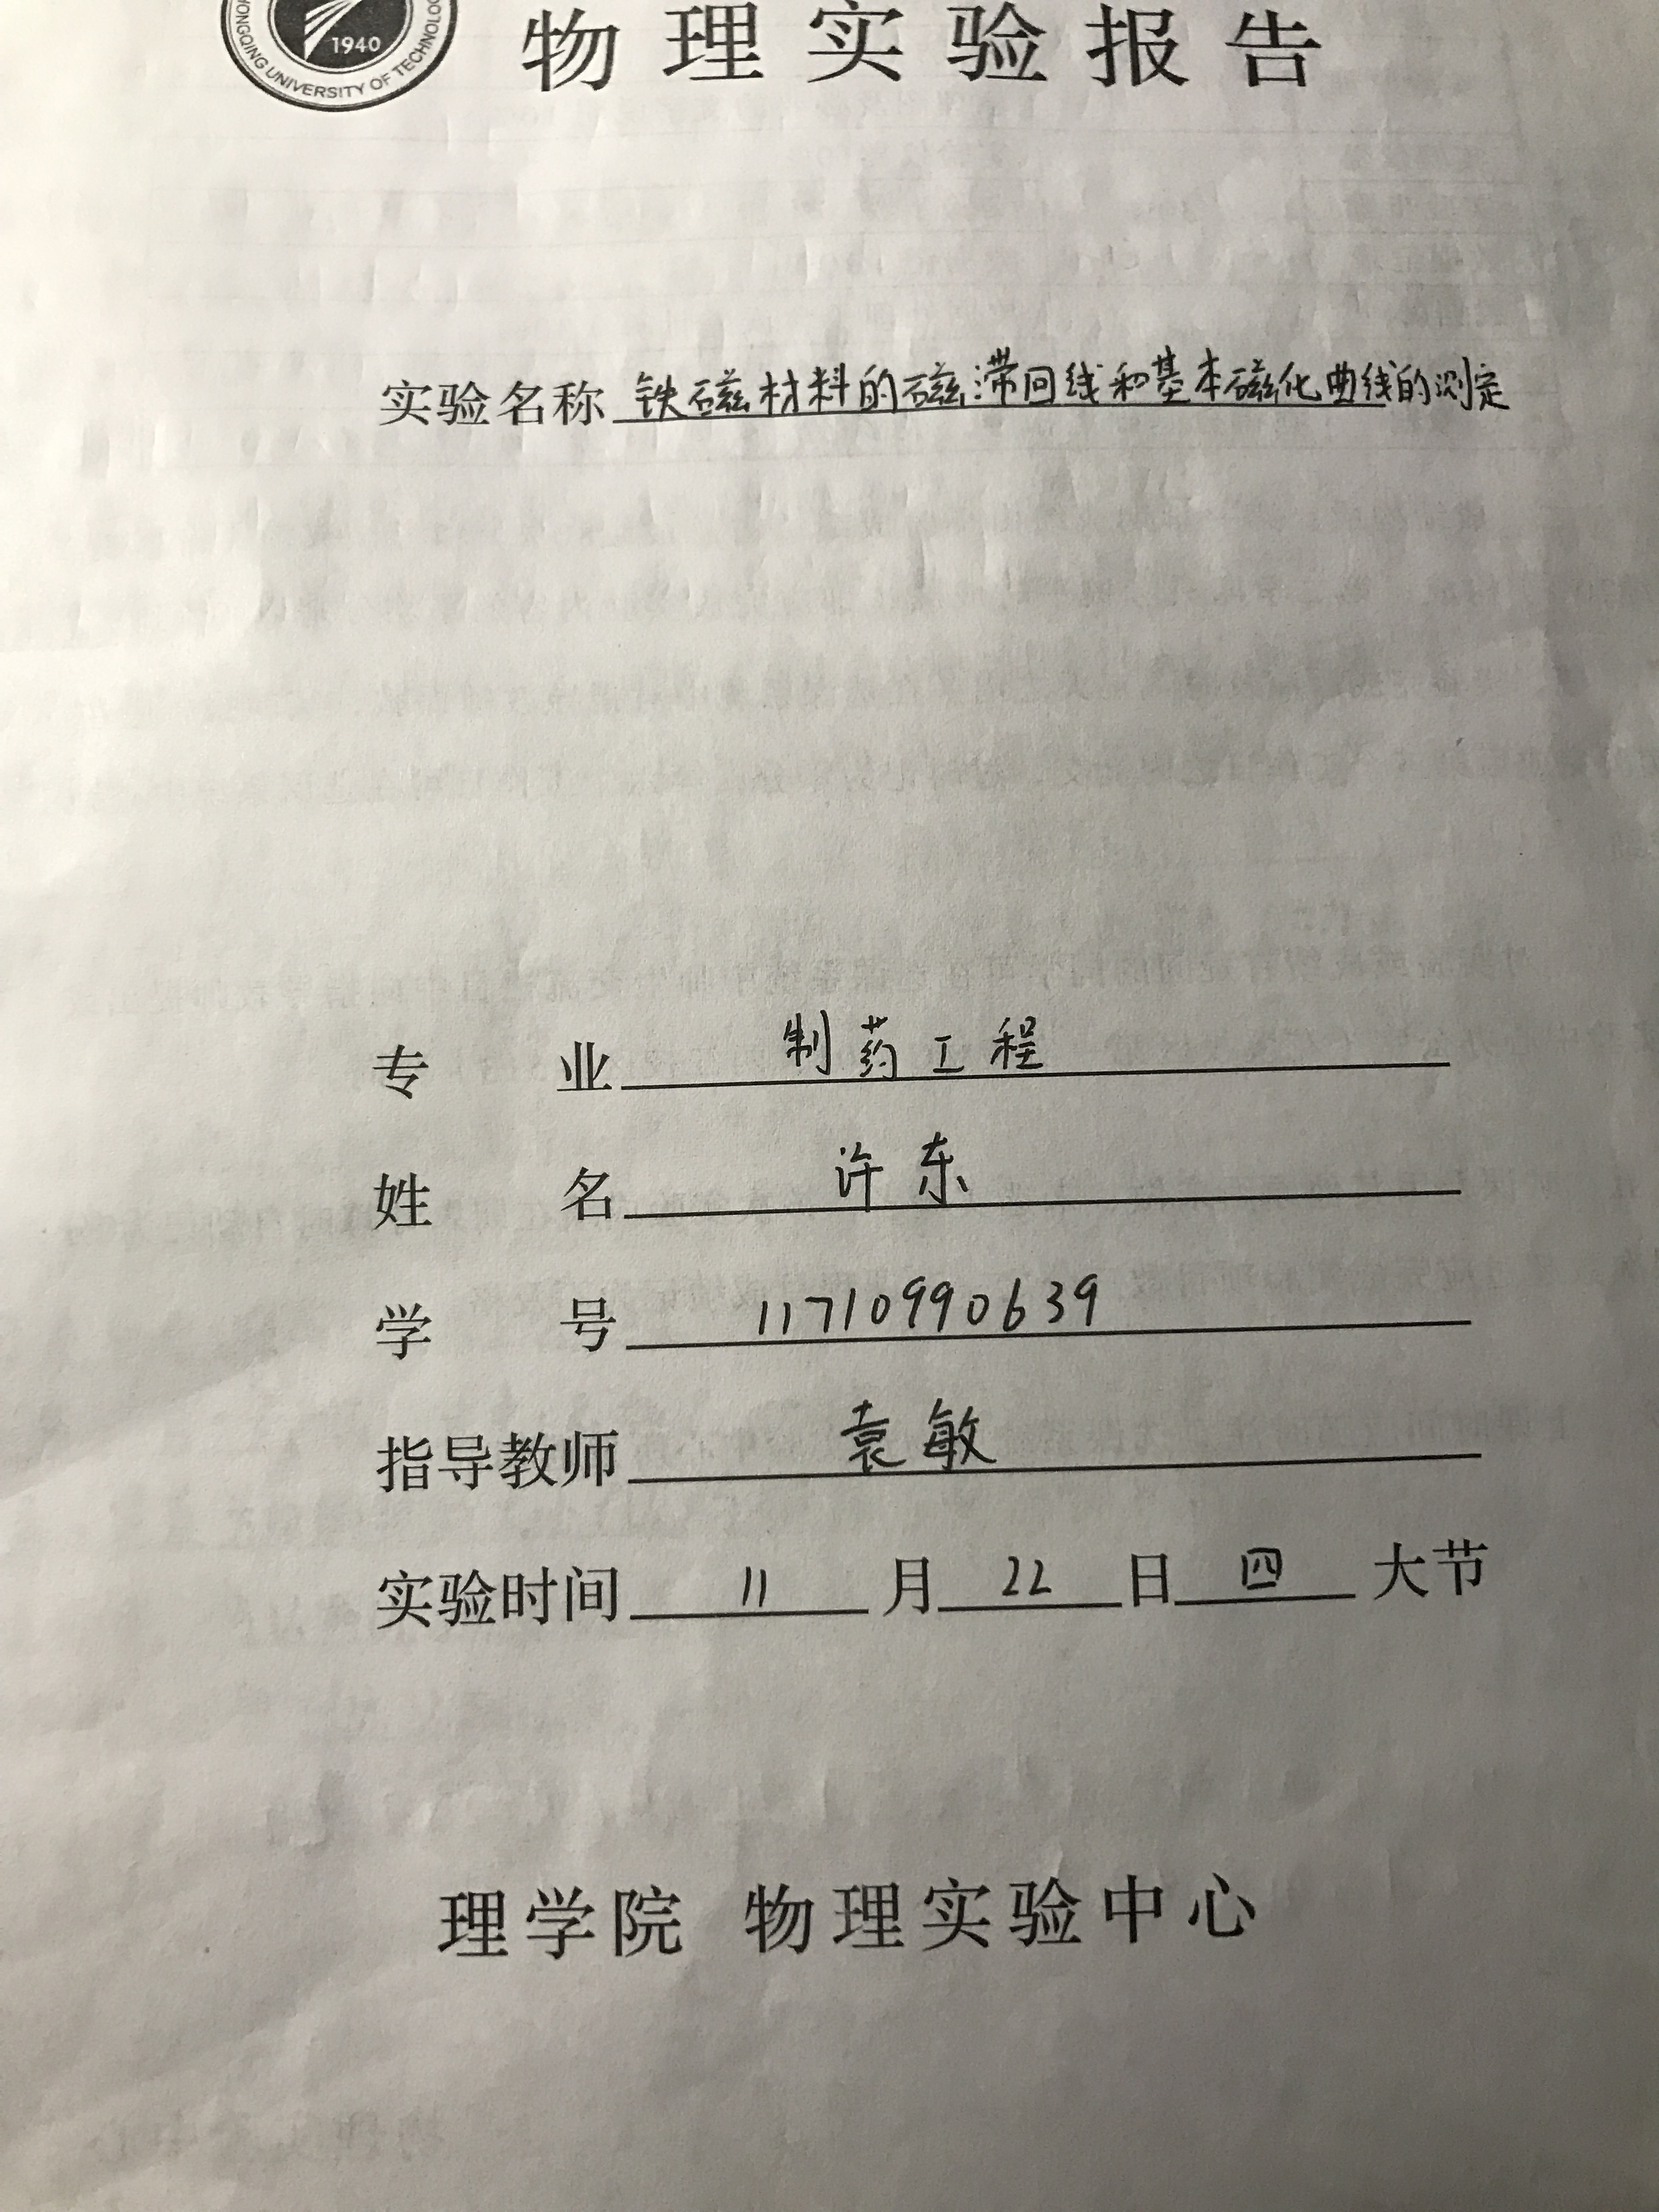 1940
NGQING UNIVERSITY OF TECHNOLOG
物理实验报告
实验名称 铁磁材料的磁滞回线和基本磁化曲线的测定
专 业 制药工程
姓 名 许东
学 号 11710990639
指导教师 袁敏
实验时间 11 月 22 日 四 大节
理学院 物理实验中心